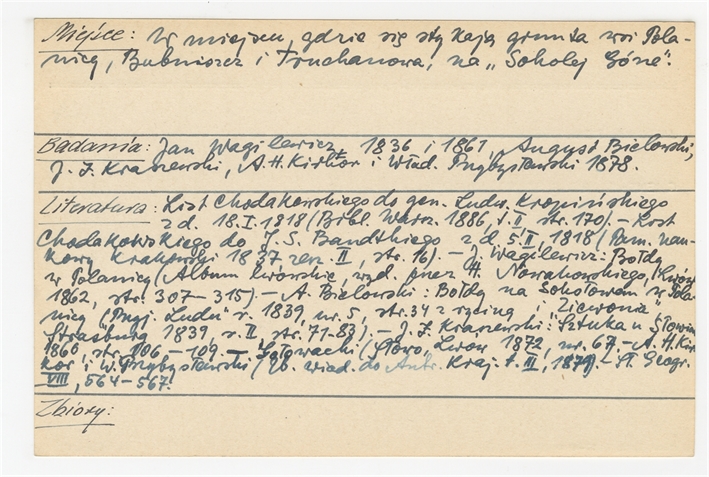 Miejsce: W miejscu, gdzie się stykają grunta wsi Pola-
nicy, Bubniszcz i Truchanowa, na „Sokolej Górze".
Badania: Jan Wagilewicz, 1836 i 1861, August Bielowski,
J. I. Kraszewski, A. H. Kirkor i Wład. Przybysławski 1878.
Literatura: List Chodakowskiego do gen. Ludw. Kropińskiego
z d. 18.I.1818 (Bibl. Warsz. 1886, t. II, str. 170). – List
Chodakowskiego do J. S. Bandtkiego z d. 5.II.1818 (Pam. nau-
kowy krakowski 1837 zesz. II, str. 16). – J. Wagilewicz: Bołdy
w Polanicy (Album lwowskie, wyd. przez H. Nowakowskiego, Lwów
1862, str. 307–315). – A. Bielowski: Bołdy na Sokołowem w Pola-
nicy (Przyj. Ludu" r. 1839, nr. 5, str. 34 z ryciną i „Ziewonia",
Strasburg 1839, r. II, str. 71–83). – J. I. Kraszewski: Sztuka u Słowian
1860, str. 106–109. – (Słowo, Lwów 1872, nr. 67. – A. H. Kir-
kor i W. Przybysławski (Zb. wiad. do Antr. Kraj. t. III, 1879). – Sł. Geogr.
VIII, 564–567.
Zbiory: